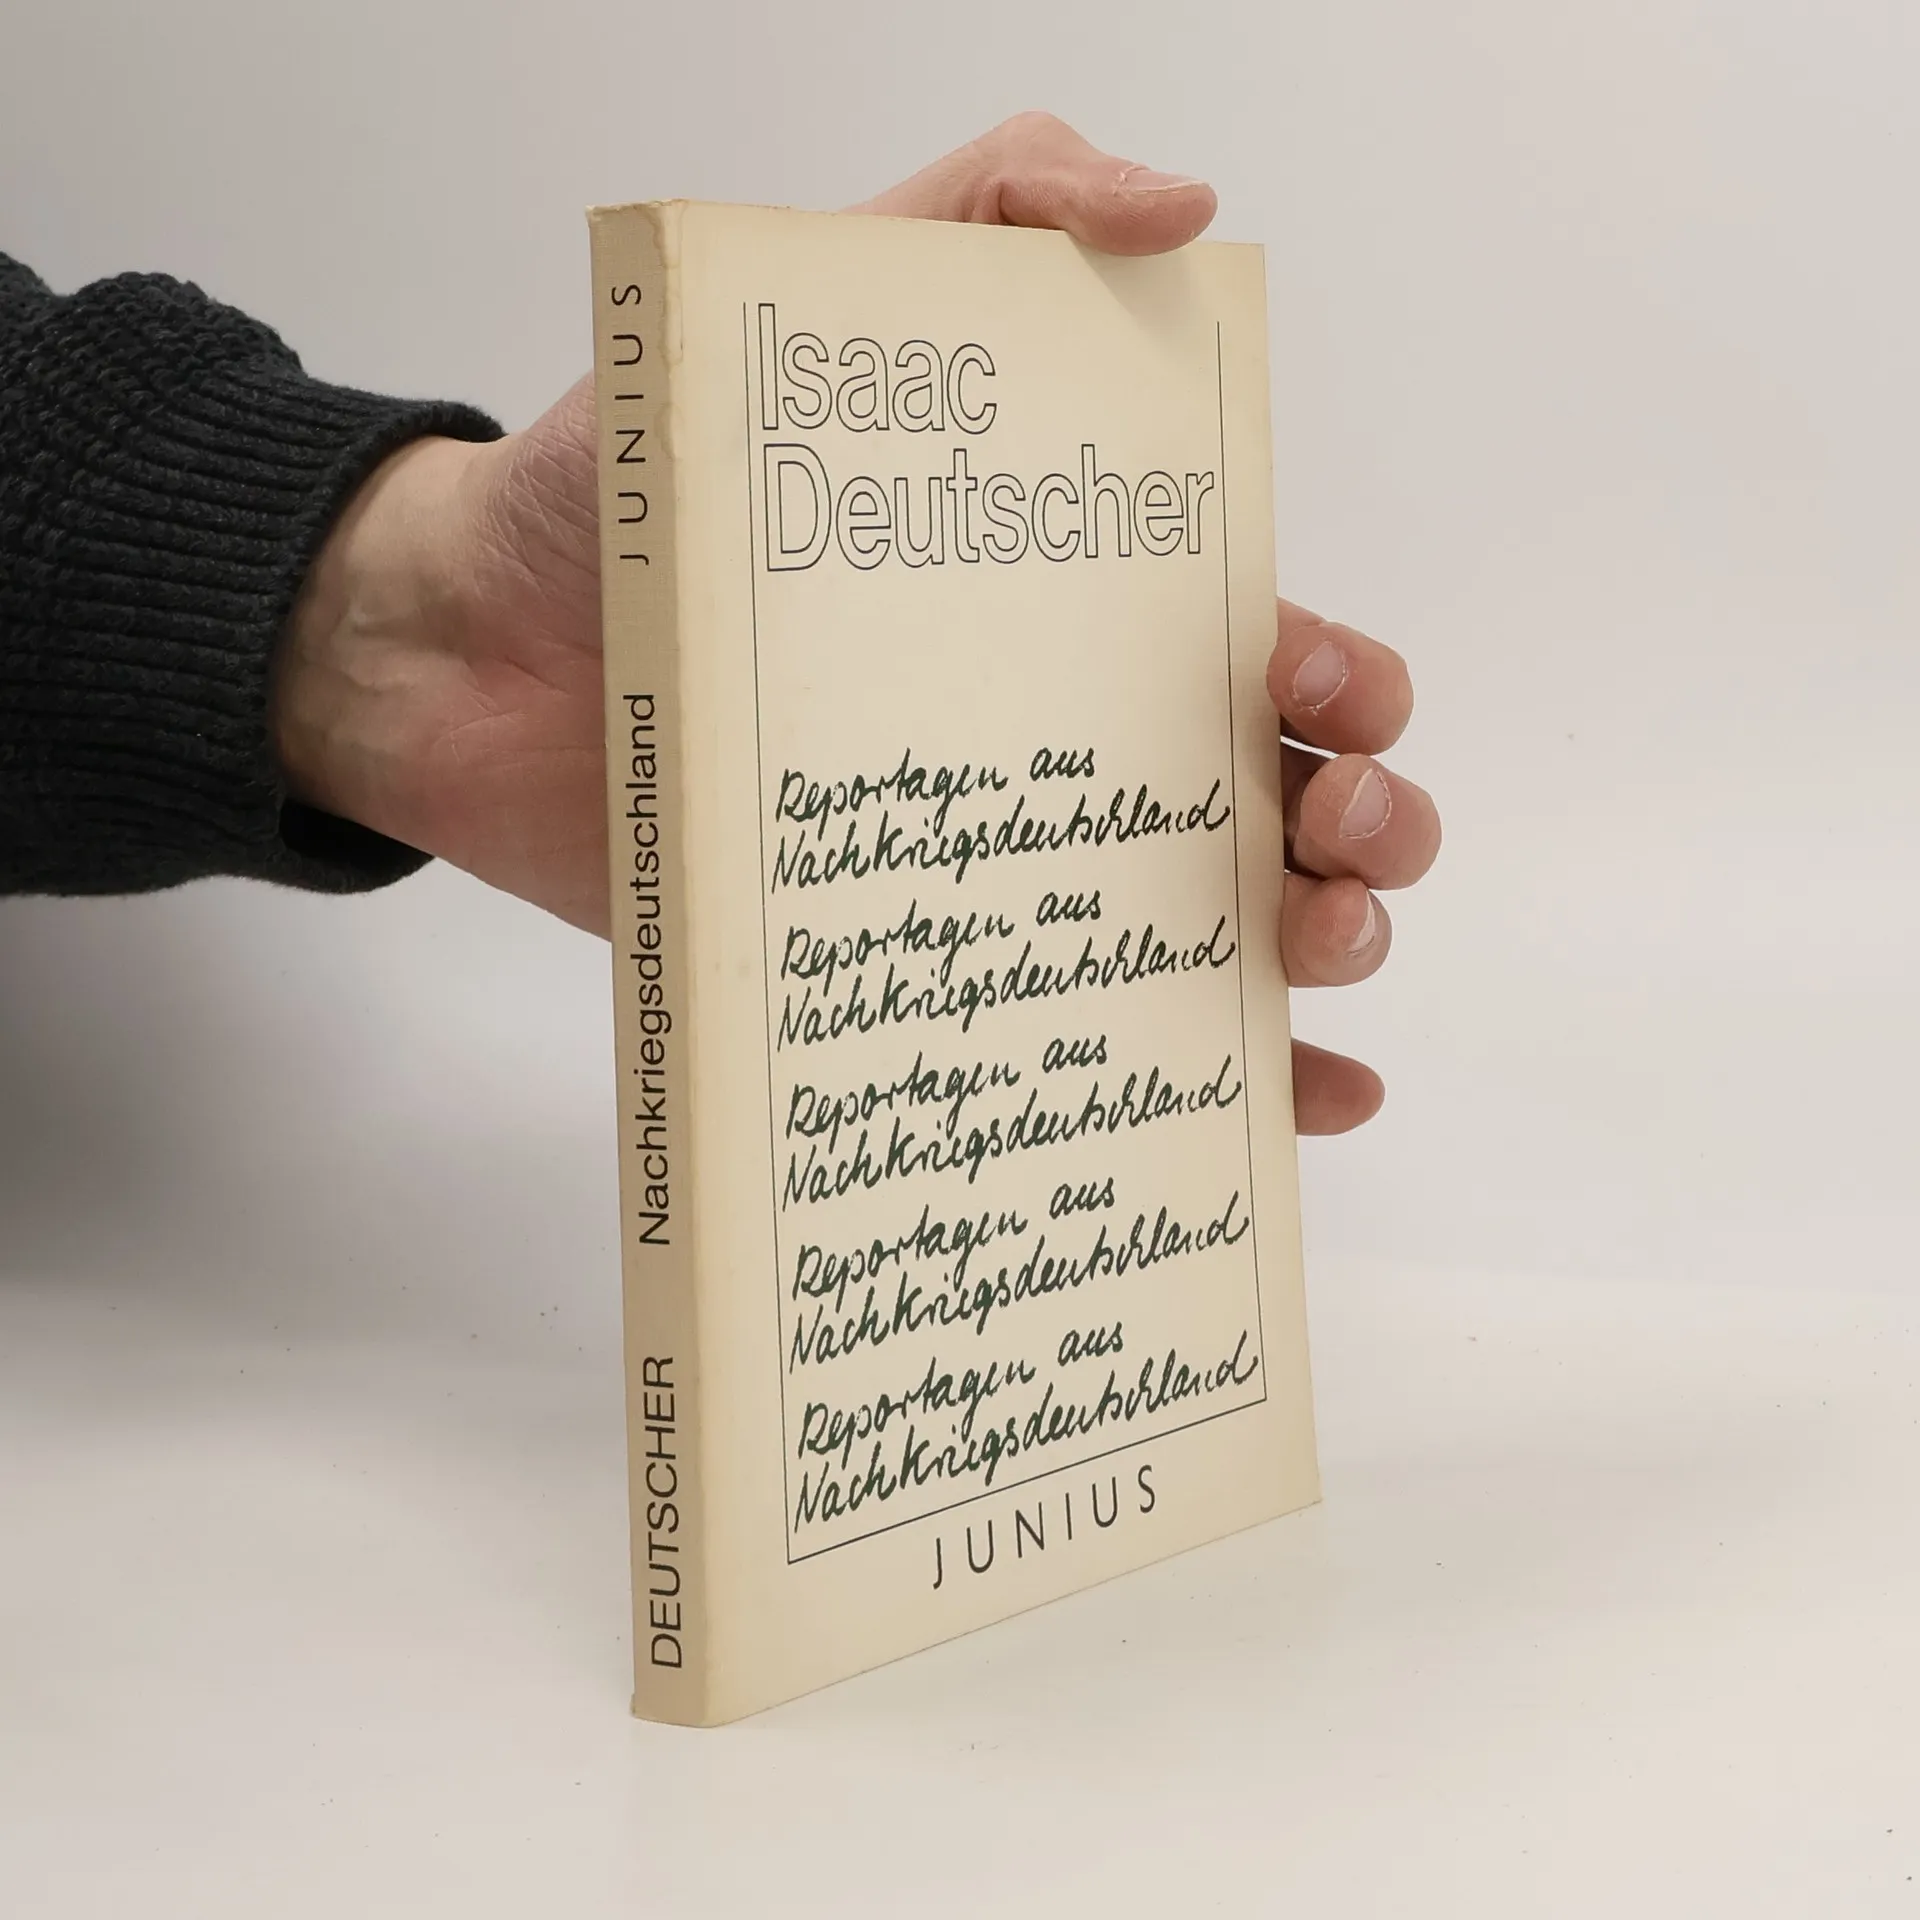 JUNIUS
Nachkriegsdeutschland
DEUTSCHER
Isaac
Deutscher
Reportagen aus
Nachkriegsdeutschland
Reportagen aus
Nachkriegsdeutschland
Reportagen aus
Nachkriegsdeutschland
Reportagen aus
Nachkriegsdeutschland
Reportagen aus
Nachkriegsdeutschland
JUNIUS